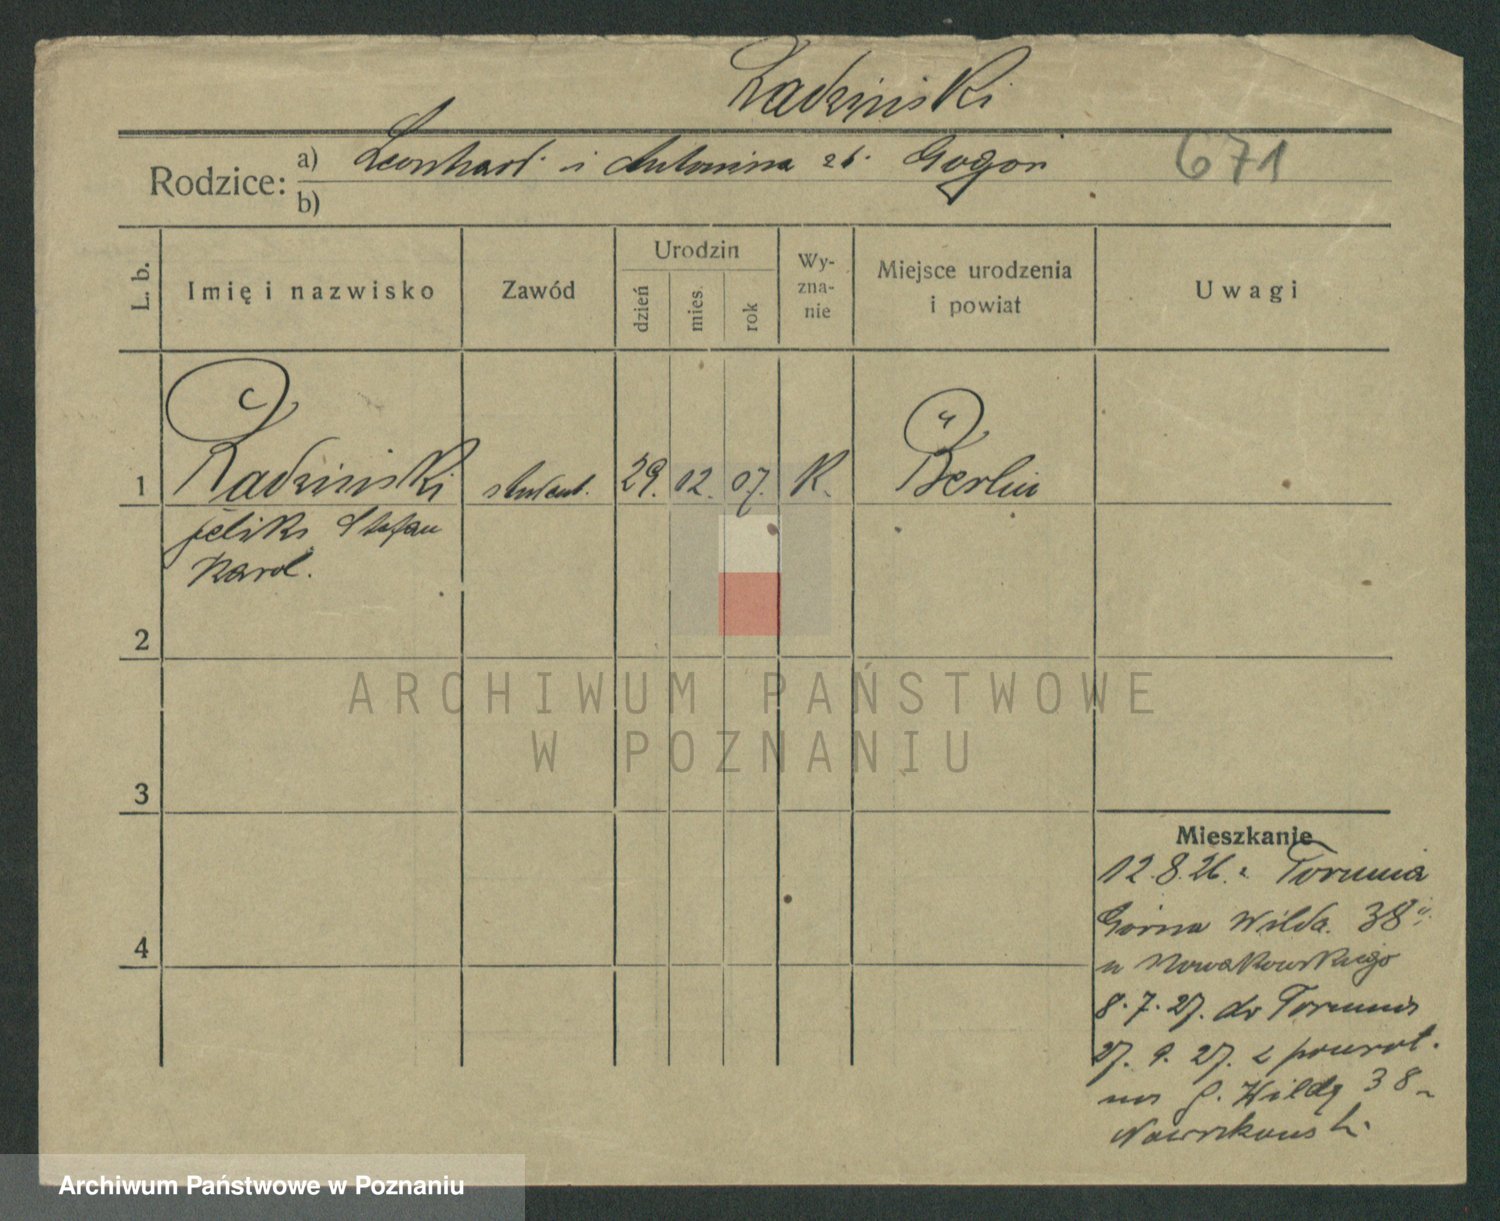 Radziński
Rodzice:
a) Leonhard i Antonina zd. Gogoń 671
b)
L. b.
Imię i nazwisko
Zawód
Urodzin
dzień
mies.
rok
Wy-
zna-
nie
Miejsce urodzenia
i powiat
Uwagi
1 Radziński student. 29. 02. 07. K. Berlin
Feliks Stefan
Karol.
2
3
4
Mieszkanie
12.8.26. z Torunia
Górna Wilda 38
u Nowakowskiego
8.7.27. do Torunia
27. 9. 27. z powrot.
na G. Wildę 38
ARCHIWUM PAŃSTWOWE
W POZNANIU
Archiwum Państwowe w Poznaniu